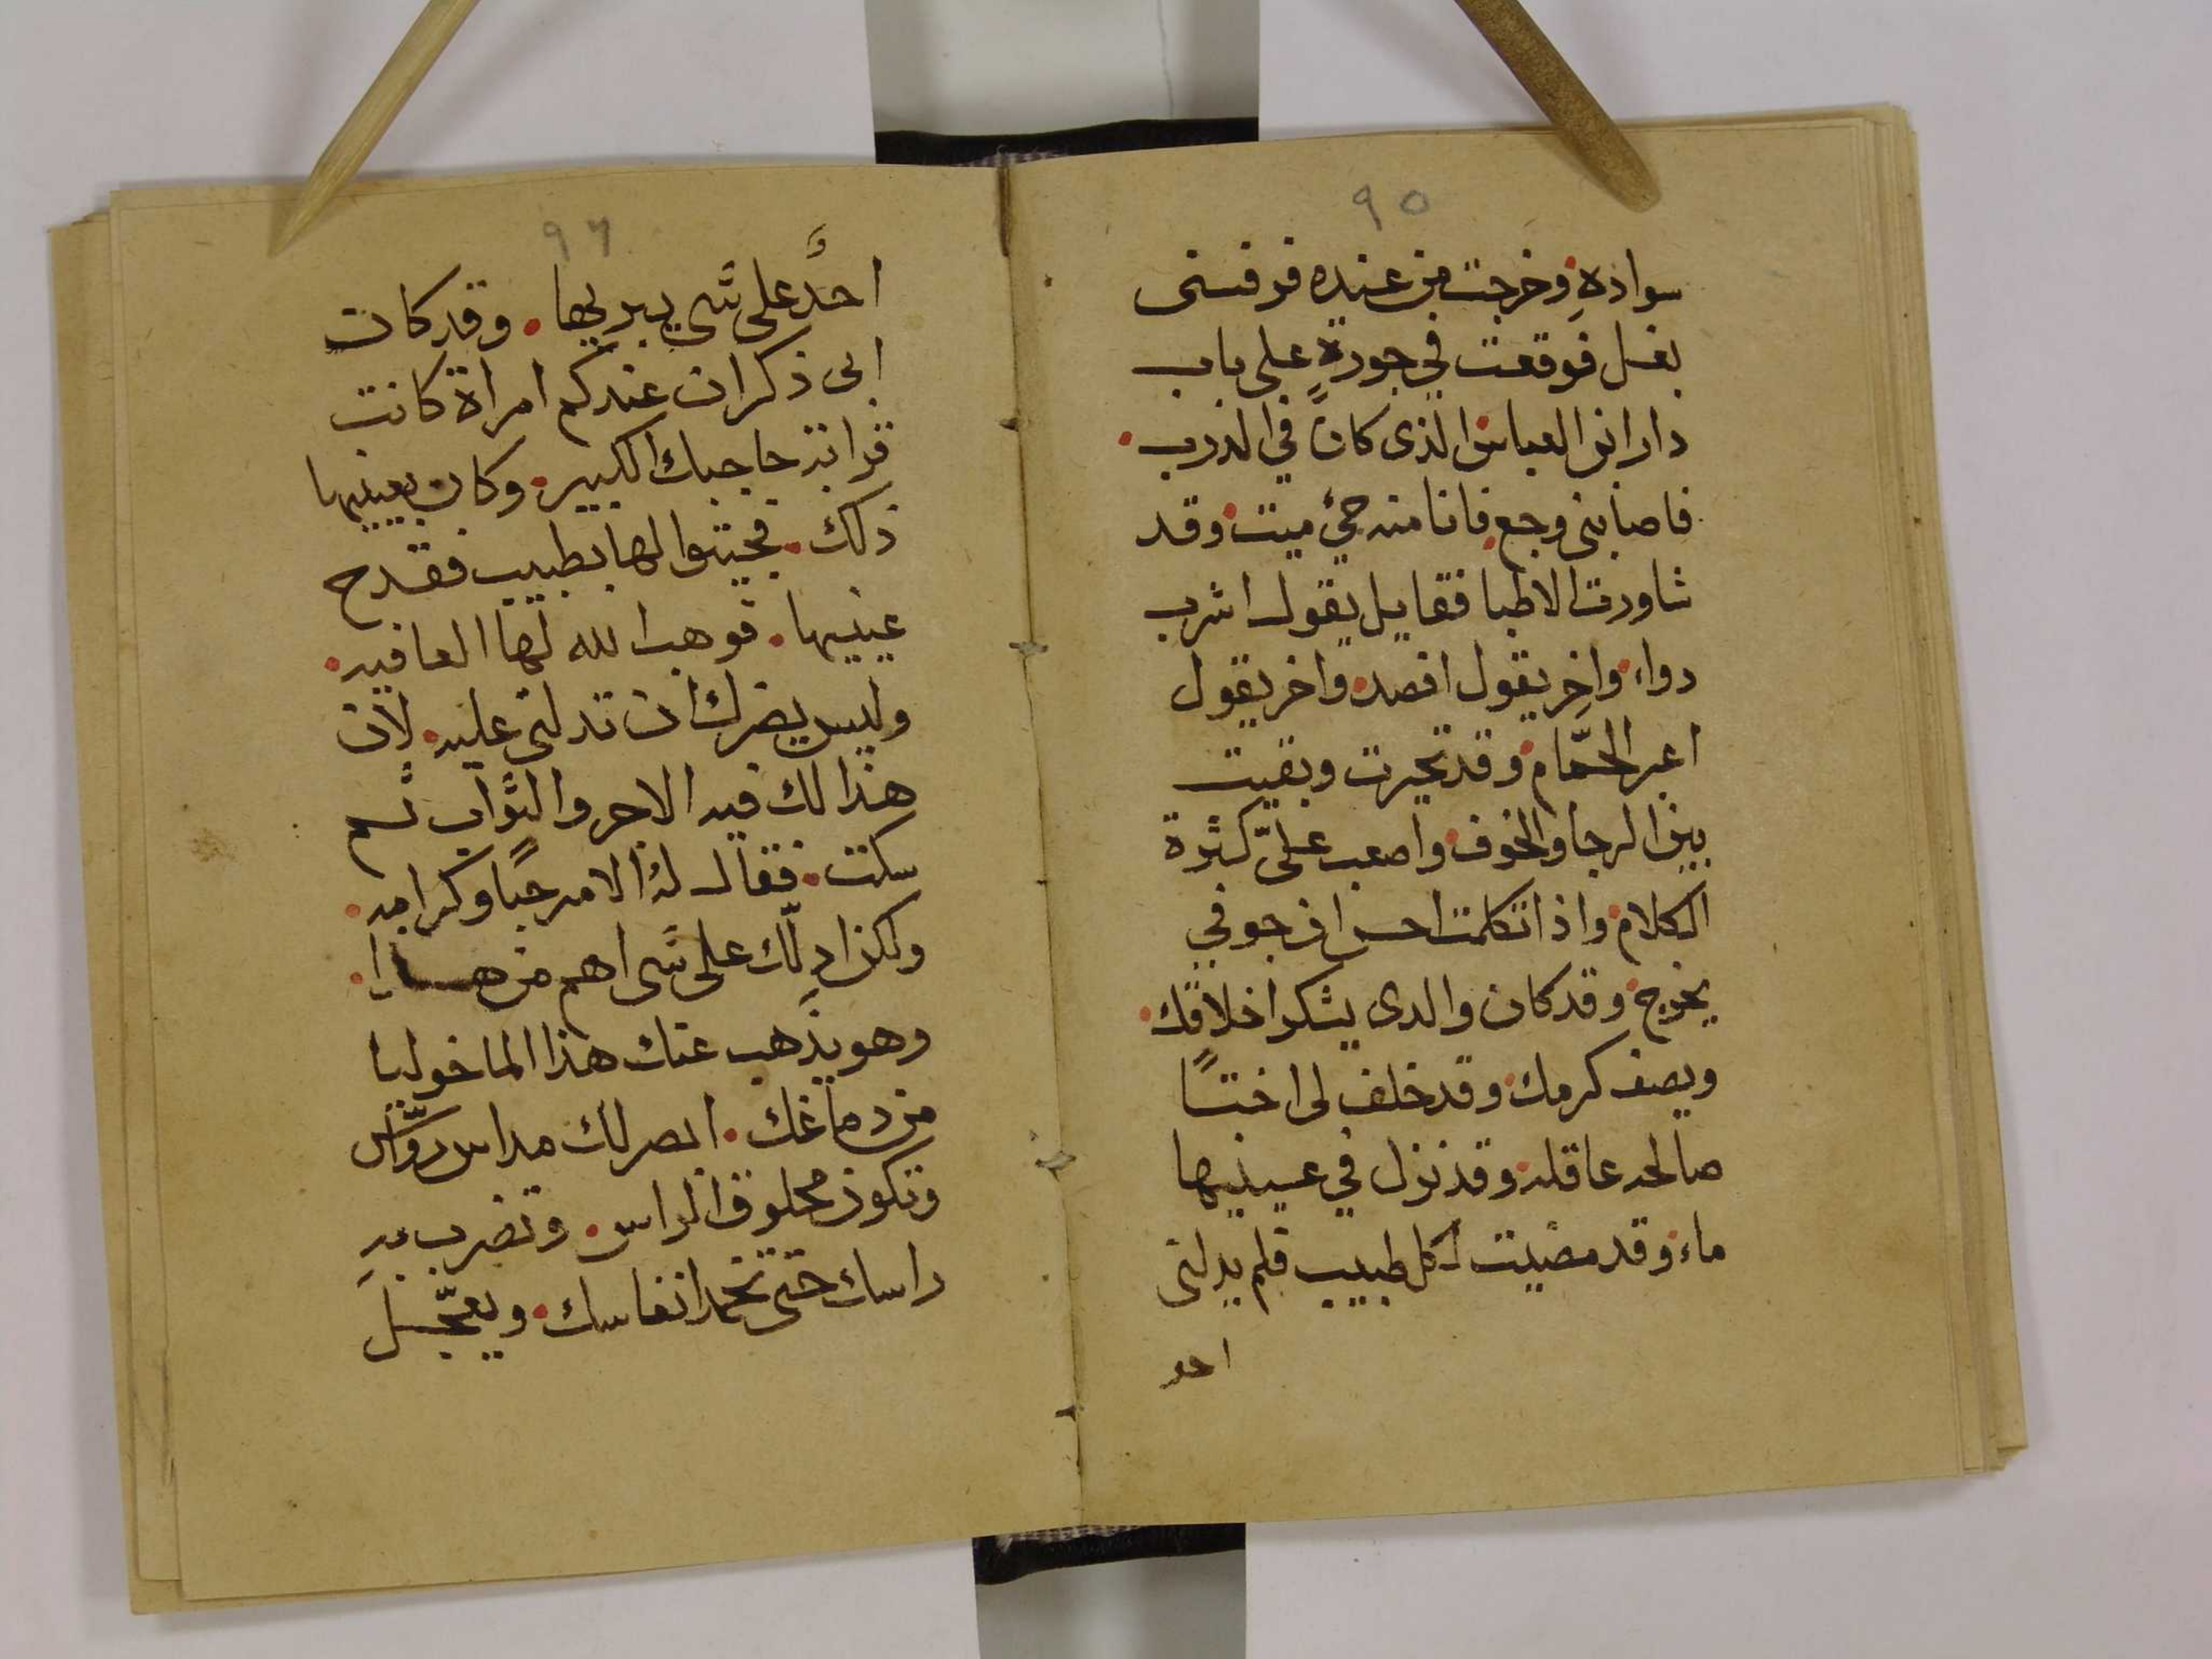 ٩٥
سواده وخرجت من عنده فرفسنى
بغل فوقعت في جورة على باب
دار ابن العباس الذى كان في الدرب
فاصابنى وجع فانا منه حيّ ميت وقد
شاورت الاطبا فقايل يقول اشرب
دواء واخر يقول افصد واخر يقول
اعبر الحمّام وقد تحيرت وبقيت
بين الرجا والخوف واصعب علىّ كثرة
الكلام واذا تكلمت احس ان جوفي
يخرج وقد كان والدى يشكر اخلاقك
ويصف كرمك وقد خلف لى اختًا
صالحه عاقله وقد نزل في عينيها
ماء وقد مضيت لكل طبيب فلم يدلنى
احد
٩٦
احدٌ على شى يبريها وقد كان
ابى ذكر ان عندكم امراة كانت
قرابة حاجبك الكبير وكان بعينيها
ذلك فجيتوا لها بطبيب فقدح
عينيها فوهب الله لها العافيه
وليس يضرك ان تدلنى عليه لان
هذا لك فيه الاجر والثواب ثم
سكت فقال له الامر حبًا وكرامه
ولكن ادلّك على شى اهم من هذا
وهو يذهب عنك هذا الماخوليا
من دماغك ابصر لك مداس روّاس
وتكون محلوق الراس وتضرب به
راسك حتى تخمد انفاسك ويعجّل